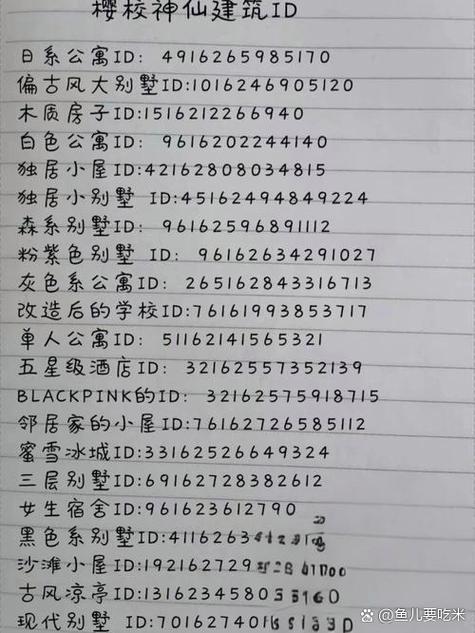 樱校神仙建筑ID
日系公寓ID: 4916265985170
偏古风大别墅ID:1016246905120
木质房子ID:1516212266940
白色公寓ID: 9616202244140
独居小屋ID:42162808034815
独居小别墅 ID:45162494849224
森系别墅ID: 96162596891112
粉紫色别墅 ID: 96162634291027
灰色系公寓ID: 265162843316713
改造后的学校ID:76161993853717
单人公寓ID: 51162141565321
五星级酒店ID: 32162557352139
BLACKPINK的ID: 32162575918715
邻居家的小屋ID:76162726585112
蜜雪冰城ID:33162526649324
三层别墅ID:69162728382612
女生宿舍ID:961623612790
黑色系别墅ID:
沙滩小屋ID:
古风凉亭ID:
现代别墅 ID:
@鱼儿要吃米